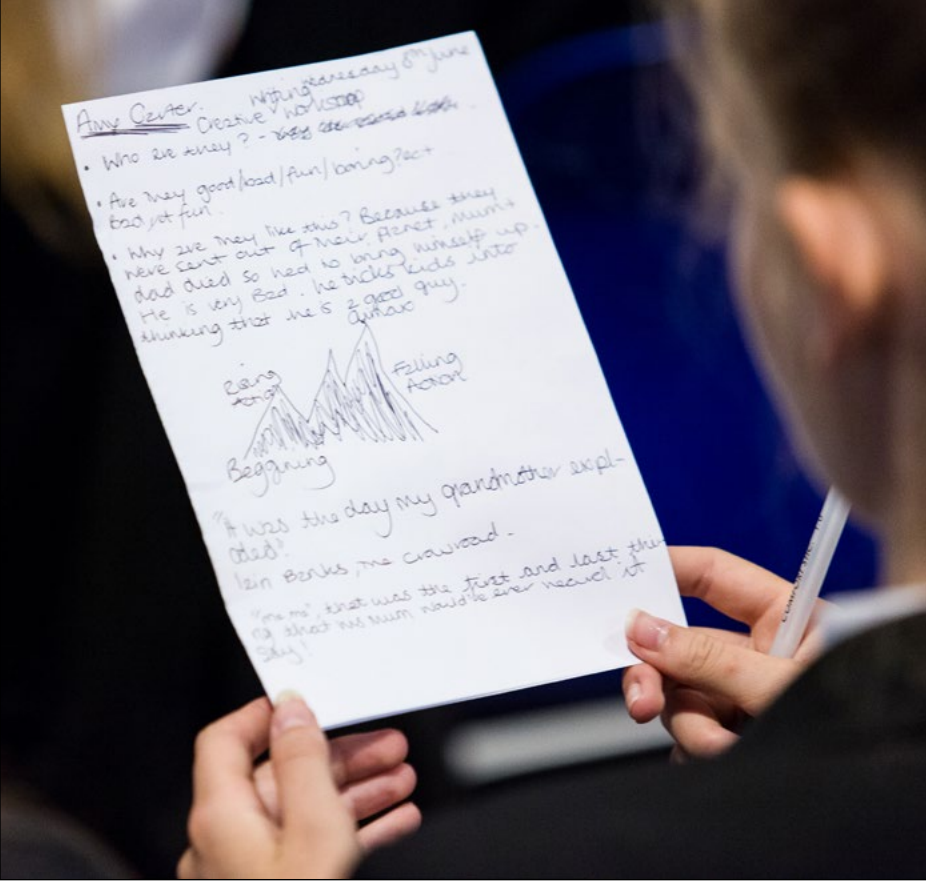 Amy Carter.
Wednesday 8th June
Creative Writing Workshop
• Who are they? -
• Are they good/bad/fun/boring? ect
Bad, at fun.
• Why are they like this? Because they
were sent out of their planet, mum +
dad died so had to bring himself up.
He is very Bad. he tricks kids into
thinking that he is a good guy.
Climax
Rising
Action
Falling
Action
Beggining
"It was the day my grandmother expl-
oded!
Iain Banks, The Crowroad.
"me me", that was the first and last thi-
ng that his mum would've ever heard it
say!